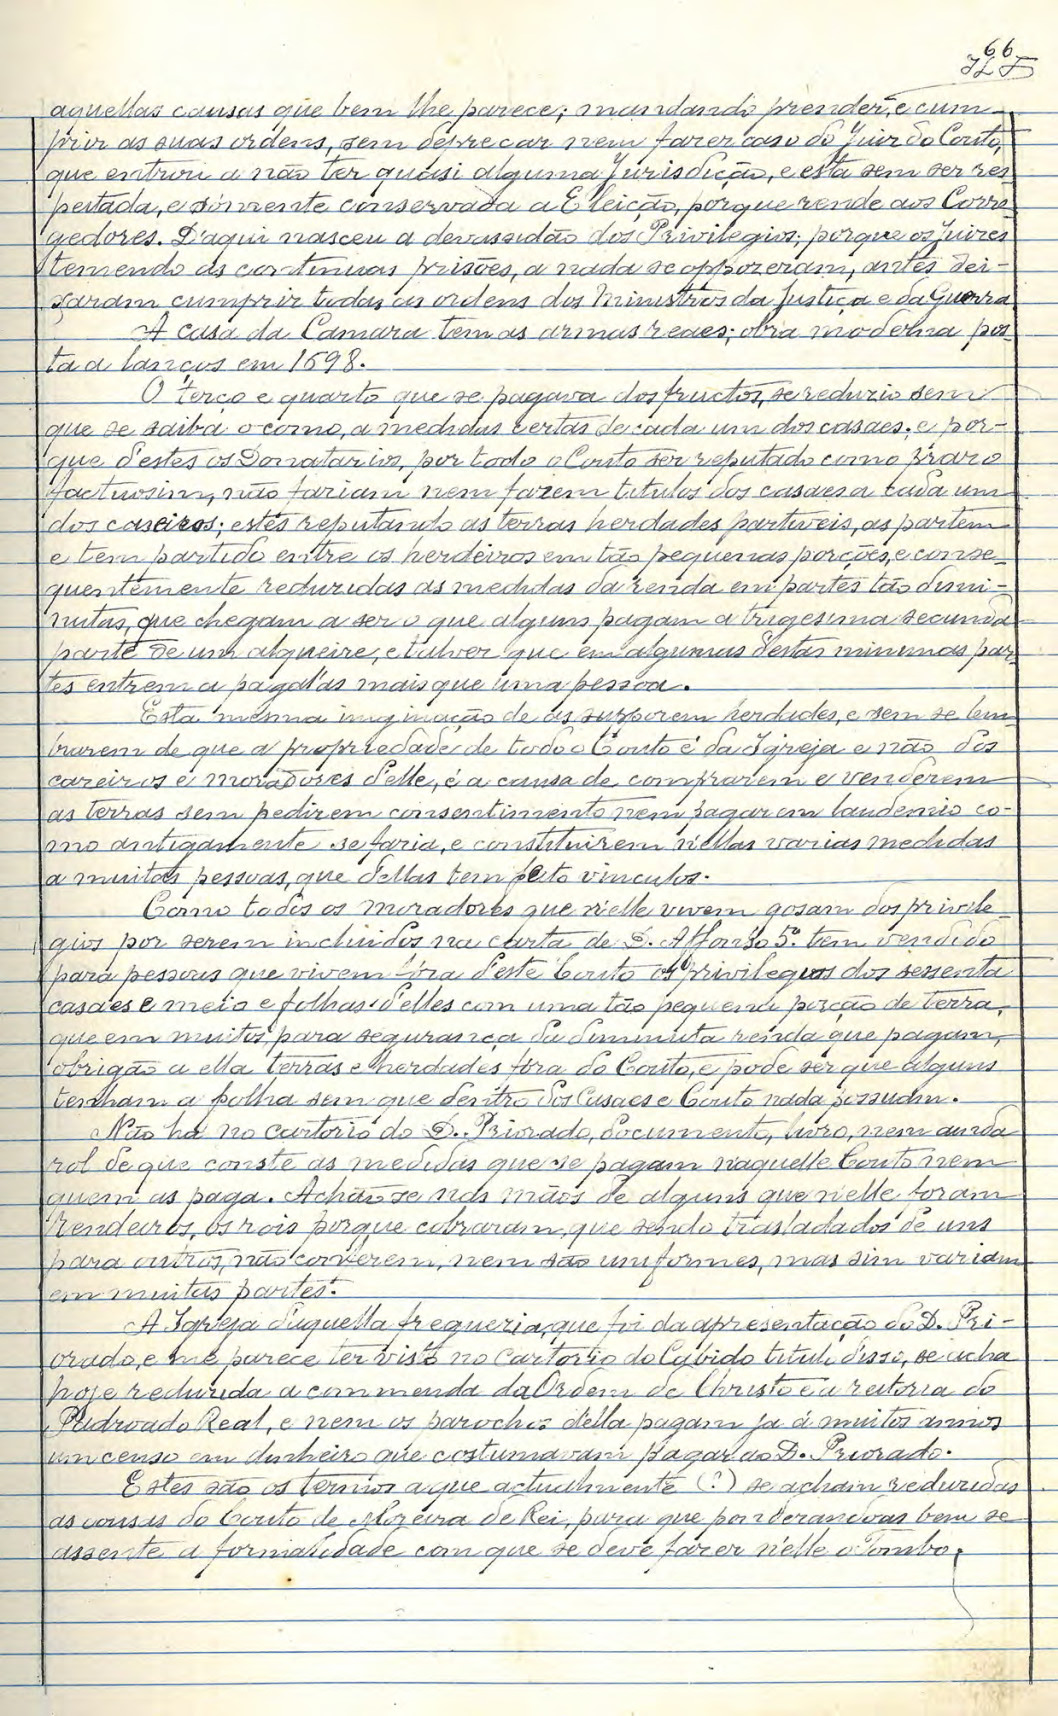 66
aquellas causas que bem lhe parece; mandando prender, e cum-
prir as suas ordens, sem deprecar nem fazer caso do Juiz do Couto,
que entrou a não ter quasi alguma Jurisdicção, e esta sem ser res
peitada, e sómente conservada a Eleição, porque rende aos Corre
gedores. D'aqui nasceu a devassidão dos Privilegios; porque os Juizes
temendo as continuas prisões, a nada se oppozeram, antes dei-
xaram cumprir todas as ordens dos Ministros da Justiça e da Guerra
A casa da Camara tem as armas reaes; obra moderna pos
ta a lanços em 1698.
O terço e quarto que se pagava dos fructos, se reduzio sem
que se saiba o como, a medidas certas de cada um dos casaes; e por-
que d'estes os Donatarios, por todo o Couto ser reputado como prazo
factuosim, não fariam nem fazem titulos dos casaes a cada um
dos caseiros; estes reputando as terras herdades partiveis, as partem
e tem partido entre os herdeiros em tão pequenas porções, e conse-
quentemente reduzidas as medidas da renda em partes tão dimi-
nutas, que chegam a ser o que alguns pagam a trigesima secunda
parte de um alqueire, e talvez que em algumas destas minimas par
tes entrem a pagal'as mais que uma pessoa.
Esta mesma imginação de as supporem herdades, e sem se lem
brarem de que a propriedade de todo o Couto é da Igreja e não dos
cazeiros e moradores d'elle, é a causa de comprarem e venderem
as terras sem pedirem consentimento nem pagarem laudemio co-
mo antigamente se faria, e constituirem n'ellas varias medidas
a muitas pessoas, que d'ellas tem feito vinculos.
Como todos os moradores que n'elle vivem gosam dos privile-
gios por serem incluidos na carta de D. Affonso 5º. tem vendido
para pessoas que vivem fóra d'este Couto os privilegios dos sessenta
casaes e meio e folhas d'elles com uma tão pequena porção de terra,
que em muitos, para segurança da diminuta renda que pagam,
obrigão a ella terras e herdades fóra do Couto, e pode ser que alguns
tenham a folha sem que dentro dos Casaes e Couto nada possuam.
Não ha no cartorio do D. Priorado, documento, livro, nem ainda
rol de que conste as medidas que se pagam n'aquelle Couto nem
quem as paga. Achão-se nas mãos de alguns que n'elle foram
rendeiros, os rois porque cobraram, que sendo trasladados de uns
para outros, não conferem, nem são uniformes, mas sim variam
em muitas partes.
A Igreja d'aquella freguezia, que foi da apresentação do D. Pri-
orado, e me parece ter visto no cartorio do Cabido titulo disso, se acha
hoje reduzida a commenda da Ordem de Christo e a reitoria do
Padroado Real, e nem os parochos d'ella pagam ja á muitos annos
um censo em dinheiro que costumavam pagar ao D. Priorado.
Estes são os termos a que actualmente (?) se acham reduzidas
as cousas do Couto de Moreira de Rei, para que ponderandoas bem se
assente a formalidade com que se deve fazer n'elle o Tombo.